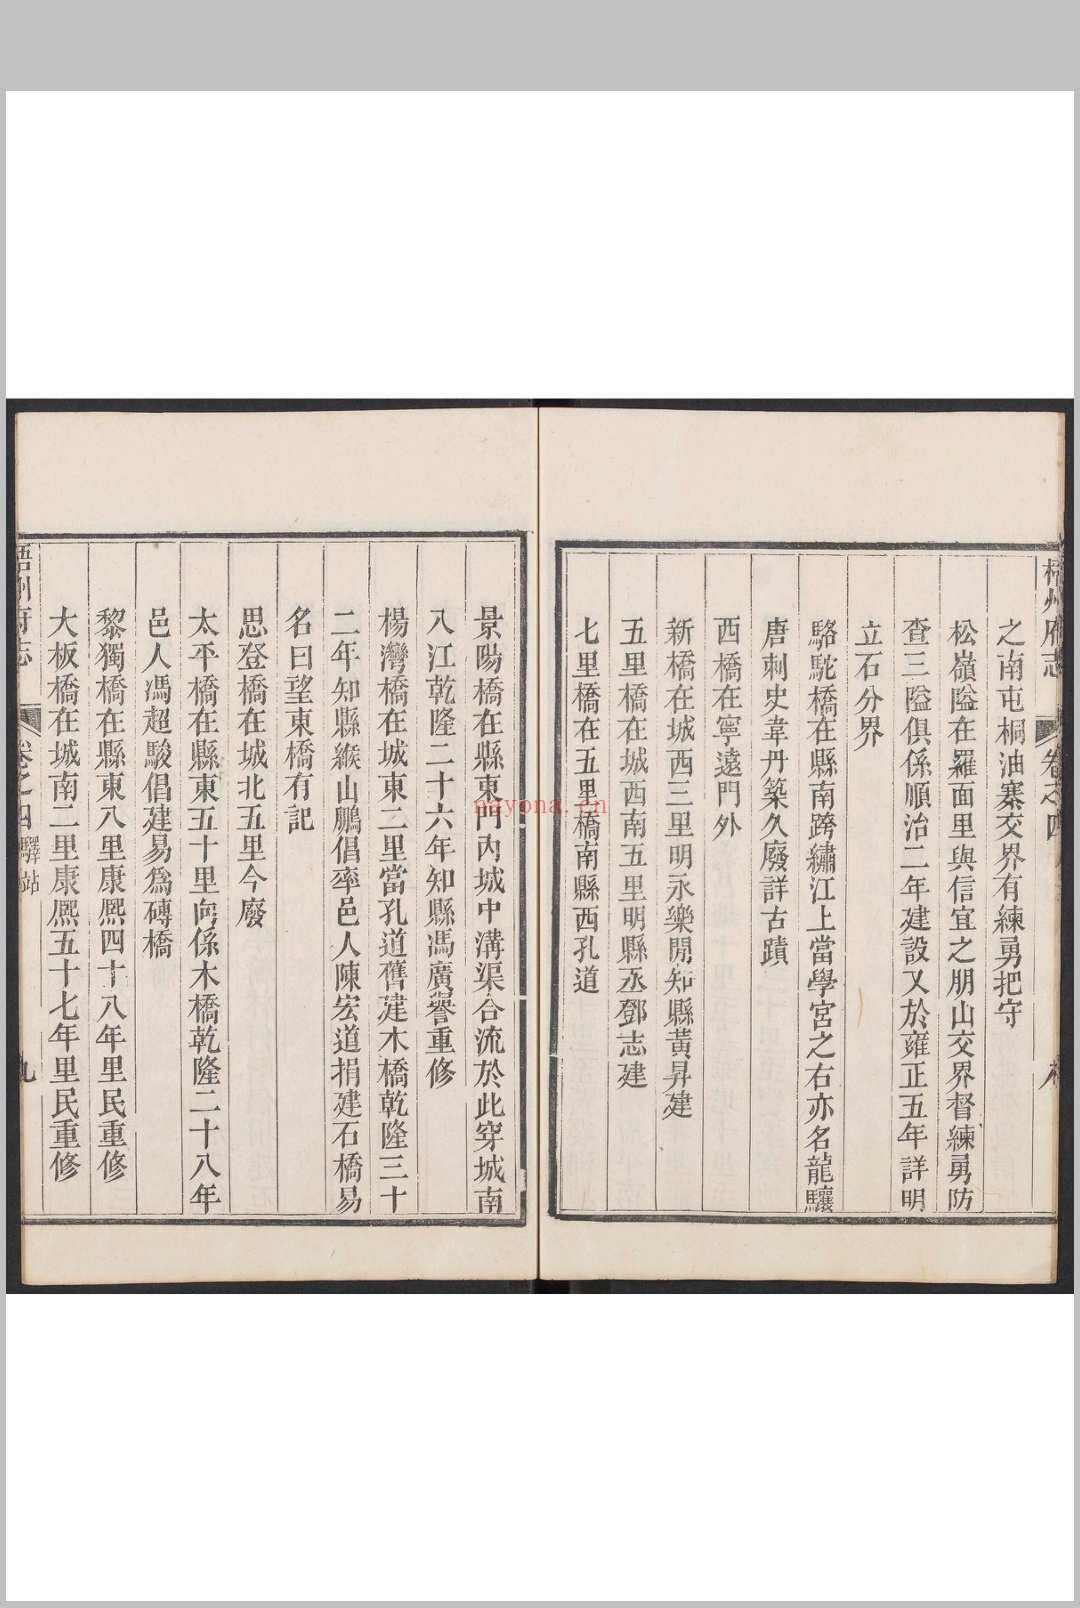 梧州府志 卷之四
之南屯桐油寨交界有練勇把守
松嶺隘在羅面里與信宜之朋山交界督練勇防
查三隘俱係順治二年建設又於雍正五年詳明
立石分界
駱駝橋在縣南跨繡江上當學宮之右亦名龍驤
唐刺史韋丹築久廢詳古蹟
西橋在寧遠門外
新橋在城西三里明永樂閒知縣黃昇建
五里橋在城西南五里明縣丞鄧志建
七里橋在五里橋南縣西孔道
景陽橋在縣東門內城中溝渠合流於此穿城南
八江乾隆二十六年知縣馮廣譽重修
楊灣橋在城東二里當孔道舊建木橋乾隆三十
二年知縣緱山鵬倡率邑人陳宏道捐建石橋易
名曰望東橋有記
思登橋在城北五里今廢
太平橋在縣東五十里向係木橋乾隆二十八年
邑人馮超駿倡建易爲磚橋
黎獨橋在縣東八里康熙四十八年里民重修
大板橋在城南二里康熙五十七年里民重修
梧州府志 卷之四 驛站 九
nayona.cn